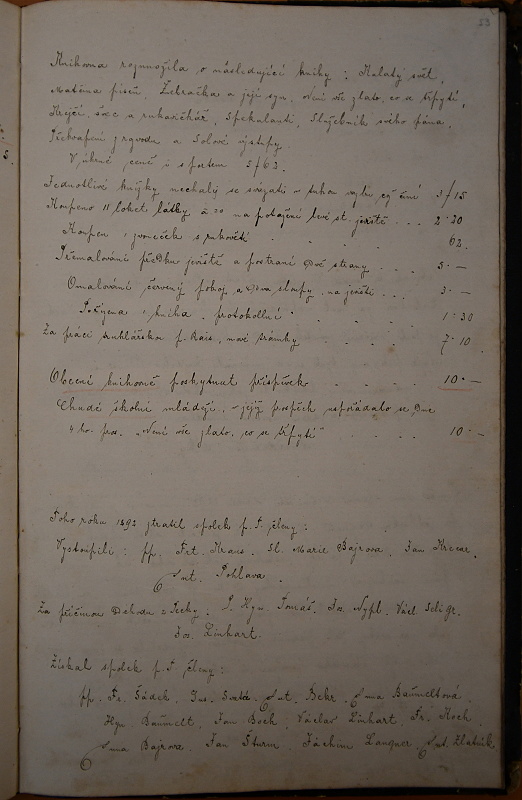 23
Knihovna rozmnožila o následující knihy: Kulatý svět,
Matčina píseň, Žebračka a její syn, Není vše zlato, co se třpytí,
Krejčí, švec a rukavičkář, Spekulanti, Služebník svého pána,
Překvapení z rozvodu a Solové výstupy.
V úhrné ceně i s portem 5/63.
Jednotlivé knížky nechaly se svázati v tuhou vazbu což činí 3/15
Koupeno 11 loket látky à 20 na potažení levé st. jeviště . . . 2·20
Koupen 1 zvoneček s rukovětí . . . 62.
Přemalování předku jeviště a postraní dvě strany . . . 5·—
Omalování červený pokoj a dva sloupy na jeviští . . . 3·—
Pořízena 1 kniha protokollní . . . 1·30
Za práci truhlářskou p. Rais, nové rámky . . . 7·10
Obecní knihovně poskytnut příspěvek . . . 10·—
Chudé školní mládeži, v jejíž prospěch uspořádalo se dne
4 ho. pros. „Není vše zlato, co se třpytí" . . . 10·—
Toho roku 1892 ztratil spolek p. T. členy:
Vystoupili: pp. Frt. Krais. Sl. Marie Bajrova, Jan
Ant. Pohlava.
Za příčinou odchodu z Pecky: P. Hyn. Tomáš. Jos. Nypl. Václ.
Jos. Linhart.
Získal spolek p. T. členy:
pp. Fr. Sádek, Ant. Bekr, Anna Baumeltová,
Hyn. Baumelt, Jan Bock, Václav Linhart, Fr. Koch,
Anna Bajrova, Jan Šturm, Jáchim Langner, Ant. Zlatník.